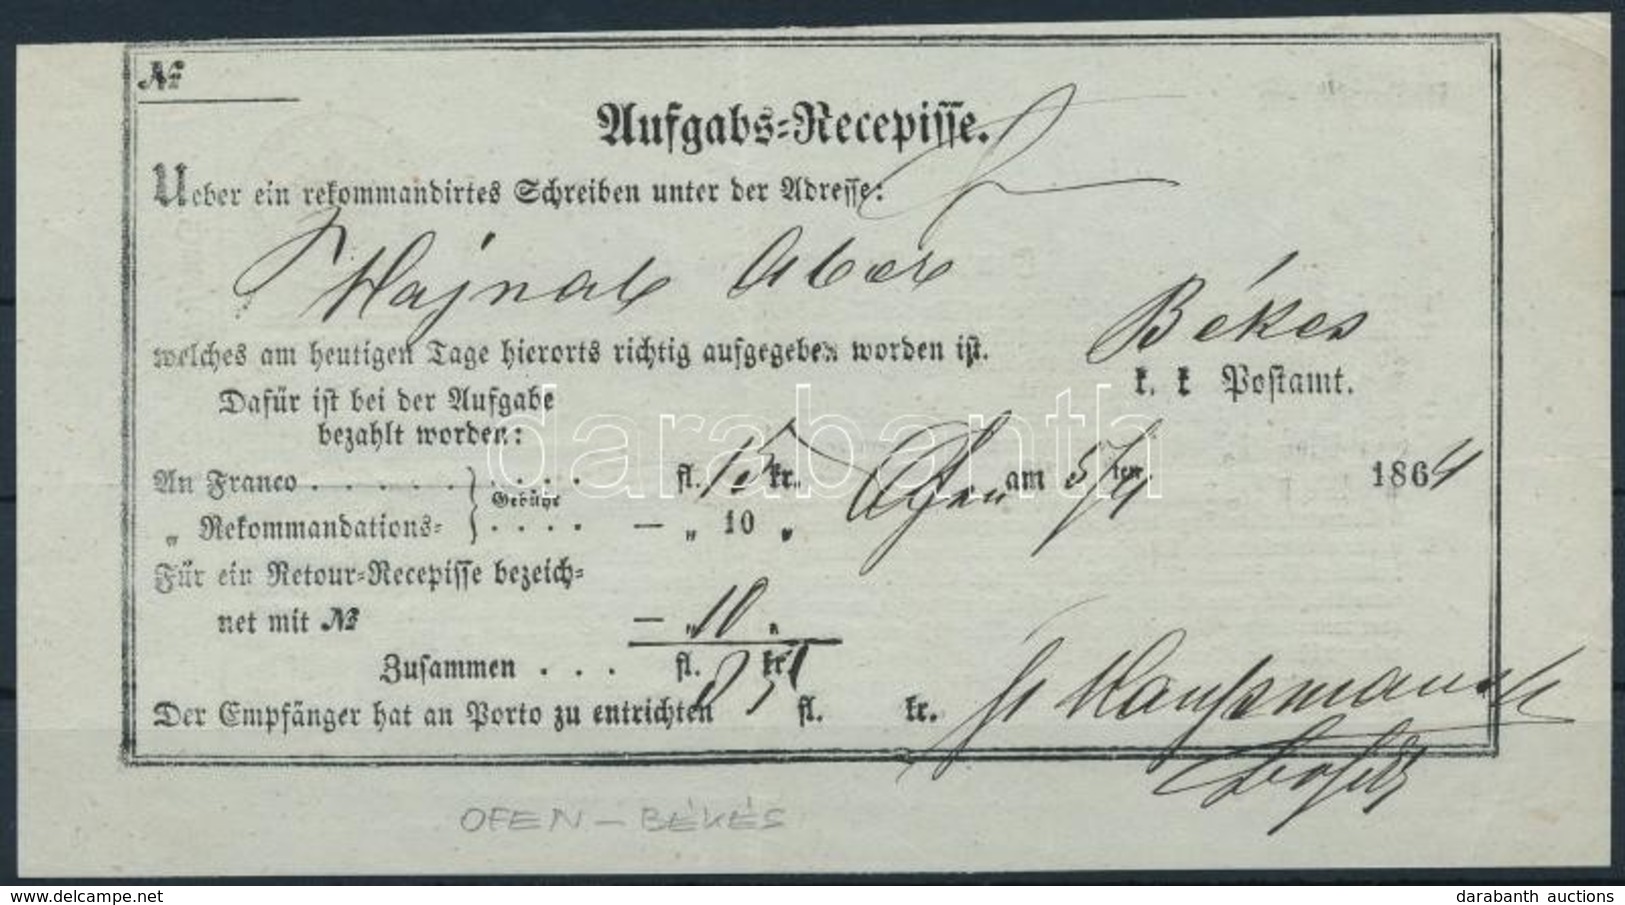 №
Aufgabs-Recepisse.
Ueber ein rekommandirtes Schreiben unter der Adresse:
Hajnal Abel
Békes
welches am heutigen Tage hierorts richtig aufgegeben worden ist.
k. k Postamt.
Dafür ist bei der Aufgabe
bezahlt worden:
An Franco . . . . . . . . . fl. 15 kr. Ofen am 5/ten 4 1864
Gebühr
„ Rekommandations- . . . . — „ 10 „
Für ein Retour-Recepisse bezeich-
net mit № — „ 10 „
Zusammen . . . fl. 35 kr
Der Empfänger hat an Porto zu entrichten fl. kr.
OFEN – BÉKÉS
darabanth
darabanth auctions